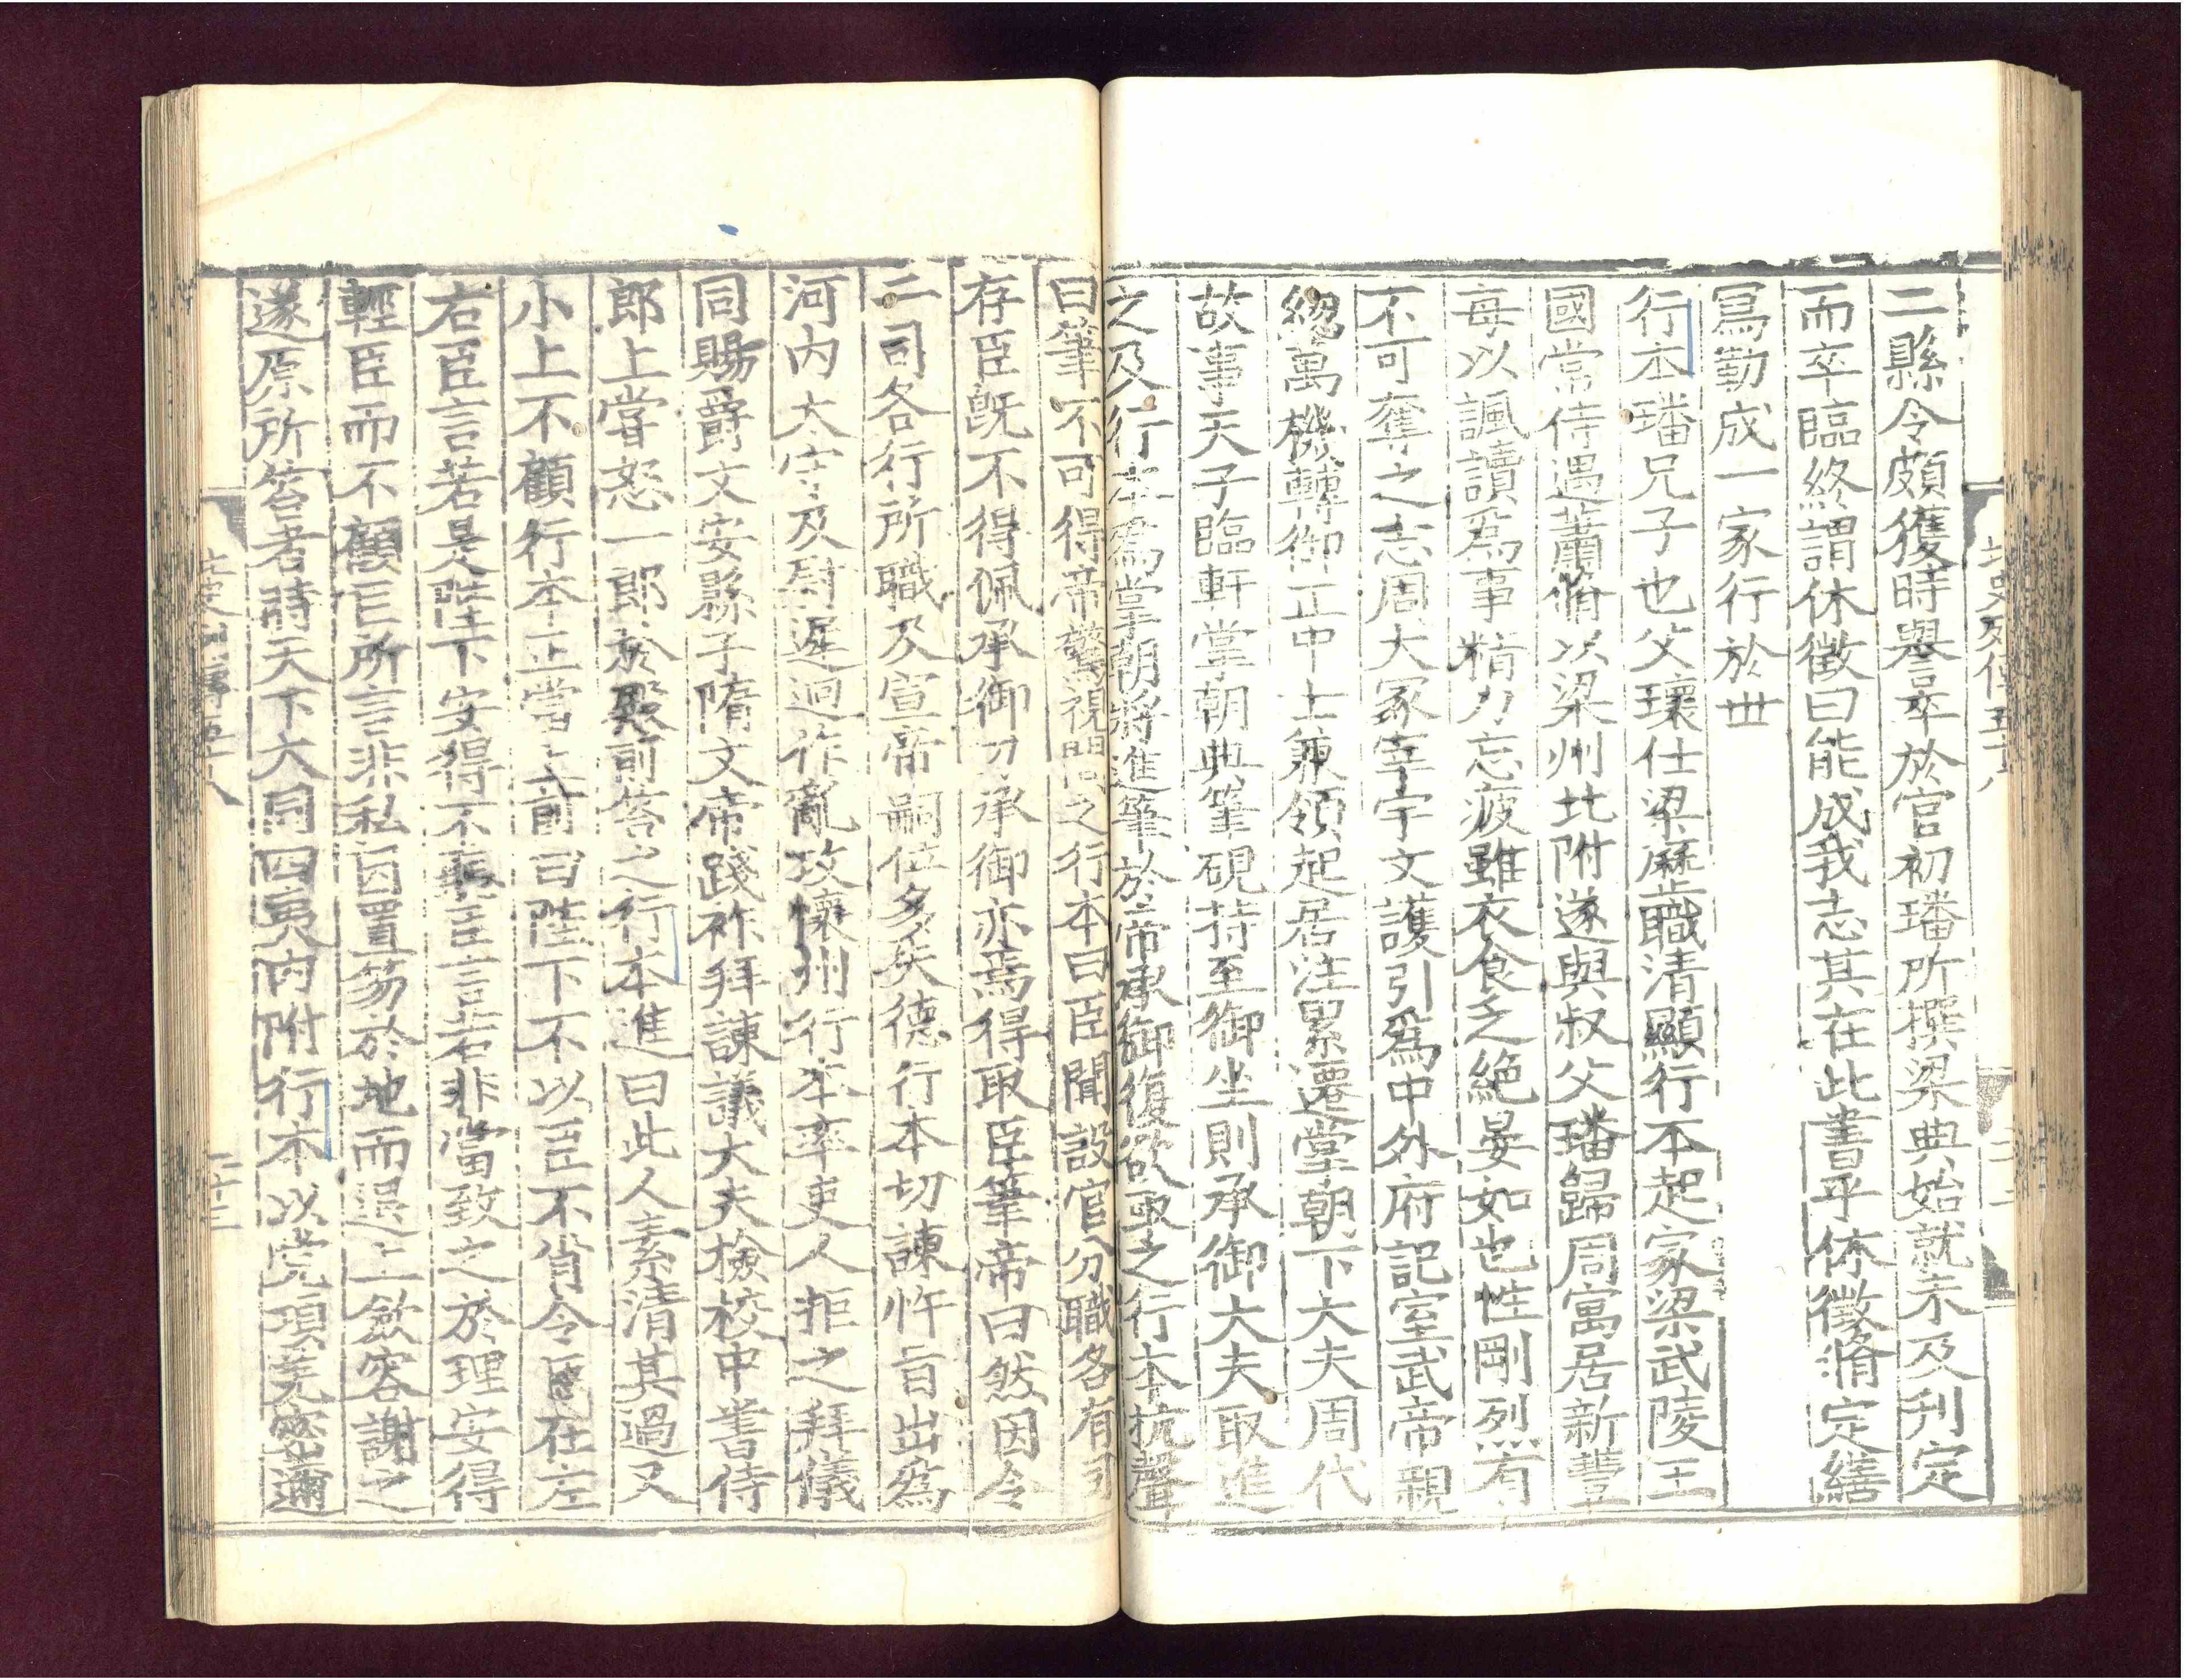 二縣令頗獲時譽卒於官初璠所撰梁典始就未及刋定
而卒臨終謂休徵曰能成我志其在此書乎休徵脩定繕
寫勒成一家行於世
行本璠兄子也父瓌仕梁歷職清顯行本起家梁武陵王
國常侍遇蕭脩以梁州北附遂與叔父璠歸周寓居新豐
每以諷讀爲事精力忘疲雖衣食乏絶晏如也性剛烈有
不可奪之志周大冢宰宇文護引爲中外府記室武帝親
緫萬機轉御正中士兼領起居注累遷掌朝下大夫周代
故事天子臨軒掌朝典筆硯持至御坐則承御大夫取進
之及行本爲掌朝將進筆於帝承御復欲取之行本抗聲
曰筆不可得帝驚視問之行本曰臣聞設官分職各有司
存臣旣不得佩承御刀承御亦焉得取臣筆帝曰然因令
二司各行所職及宣帝嗣位多失德行本切諫忤旨出爲
河内太守及尉遲迥作亂攻懷州行本率吏人拒之拜儀
同賜爵文安縣子隋文帝踐祚拜諫議大夫檢校中書侍
郎上嘗怒一郎於殿前笞之行本進曰此人素清其過又
小上不顧行本正當上前曰陛下不以臣不肖令臣在左
右臣言若是陛下安得不聽臣言若非當致之於理安得
輕臣而不顧臣所言非私因置笏於地而退上斂容謝之
遂原所笞者時天下大同四夷内附行本以党項羌密邇
北史列傳五十八
二十二
北史列傳五十八
二十三